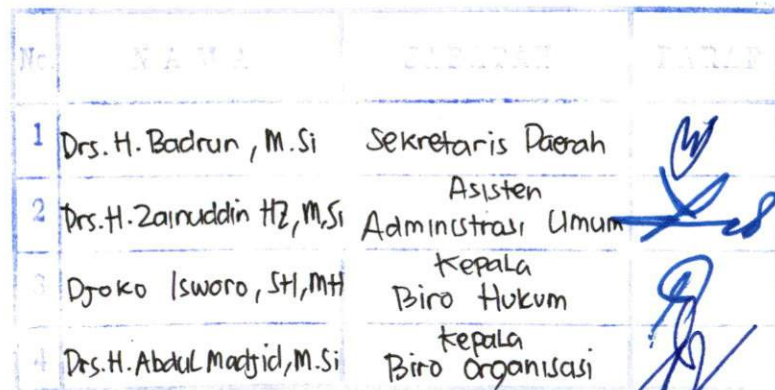 No. NAMA JABATAN PARAF
1 Drs. H. Badrun, M.Si Sekretaris Daerah
2 Drs. H. Zainuddin HZ, M,Si Asisten
Administrasi Umum
3 Djoko Isworo, SH, MH Kepala
Biro Hukum
4 Drs. H. Abdul Madjid, M.Si Kepala
Biro Organisasi